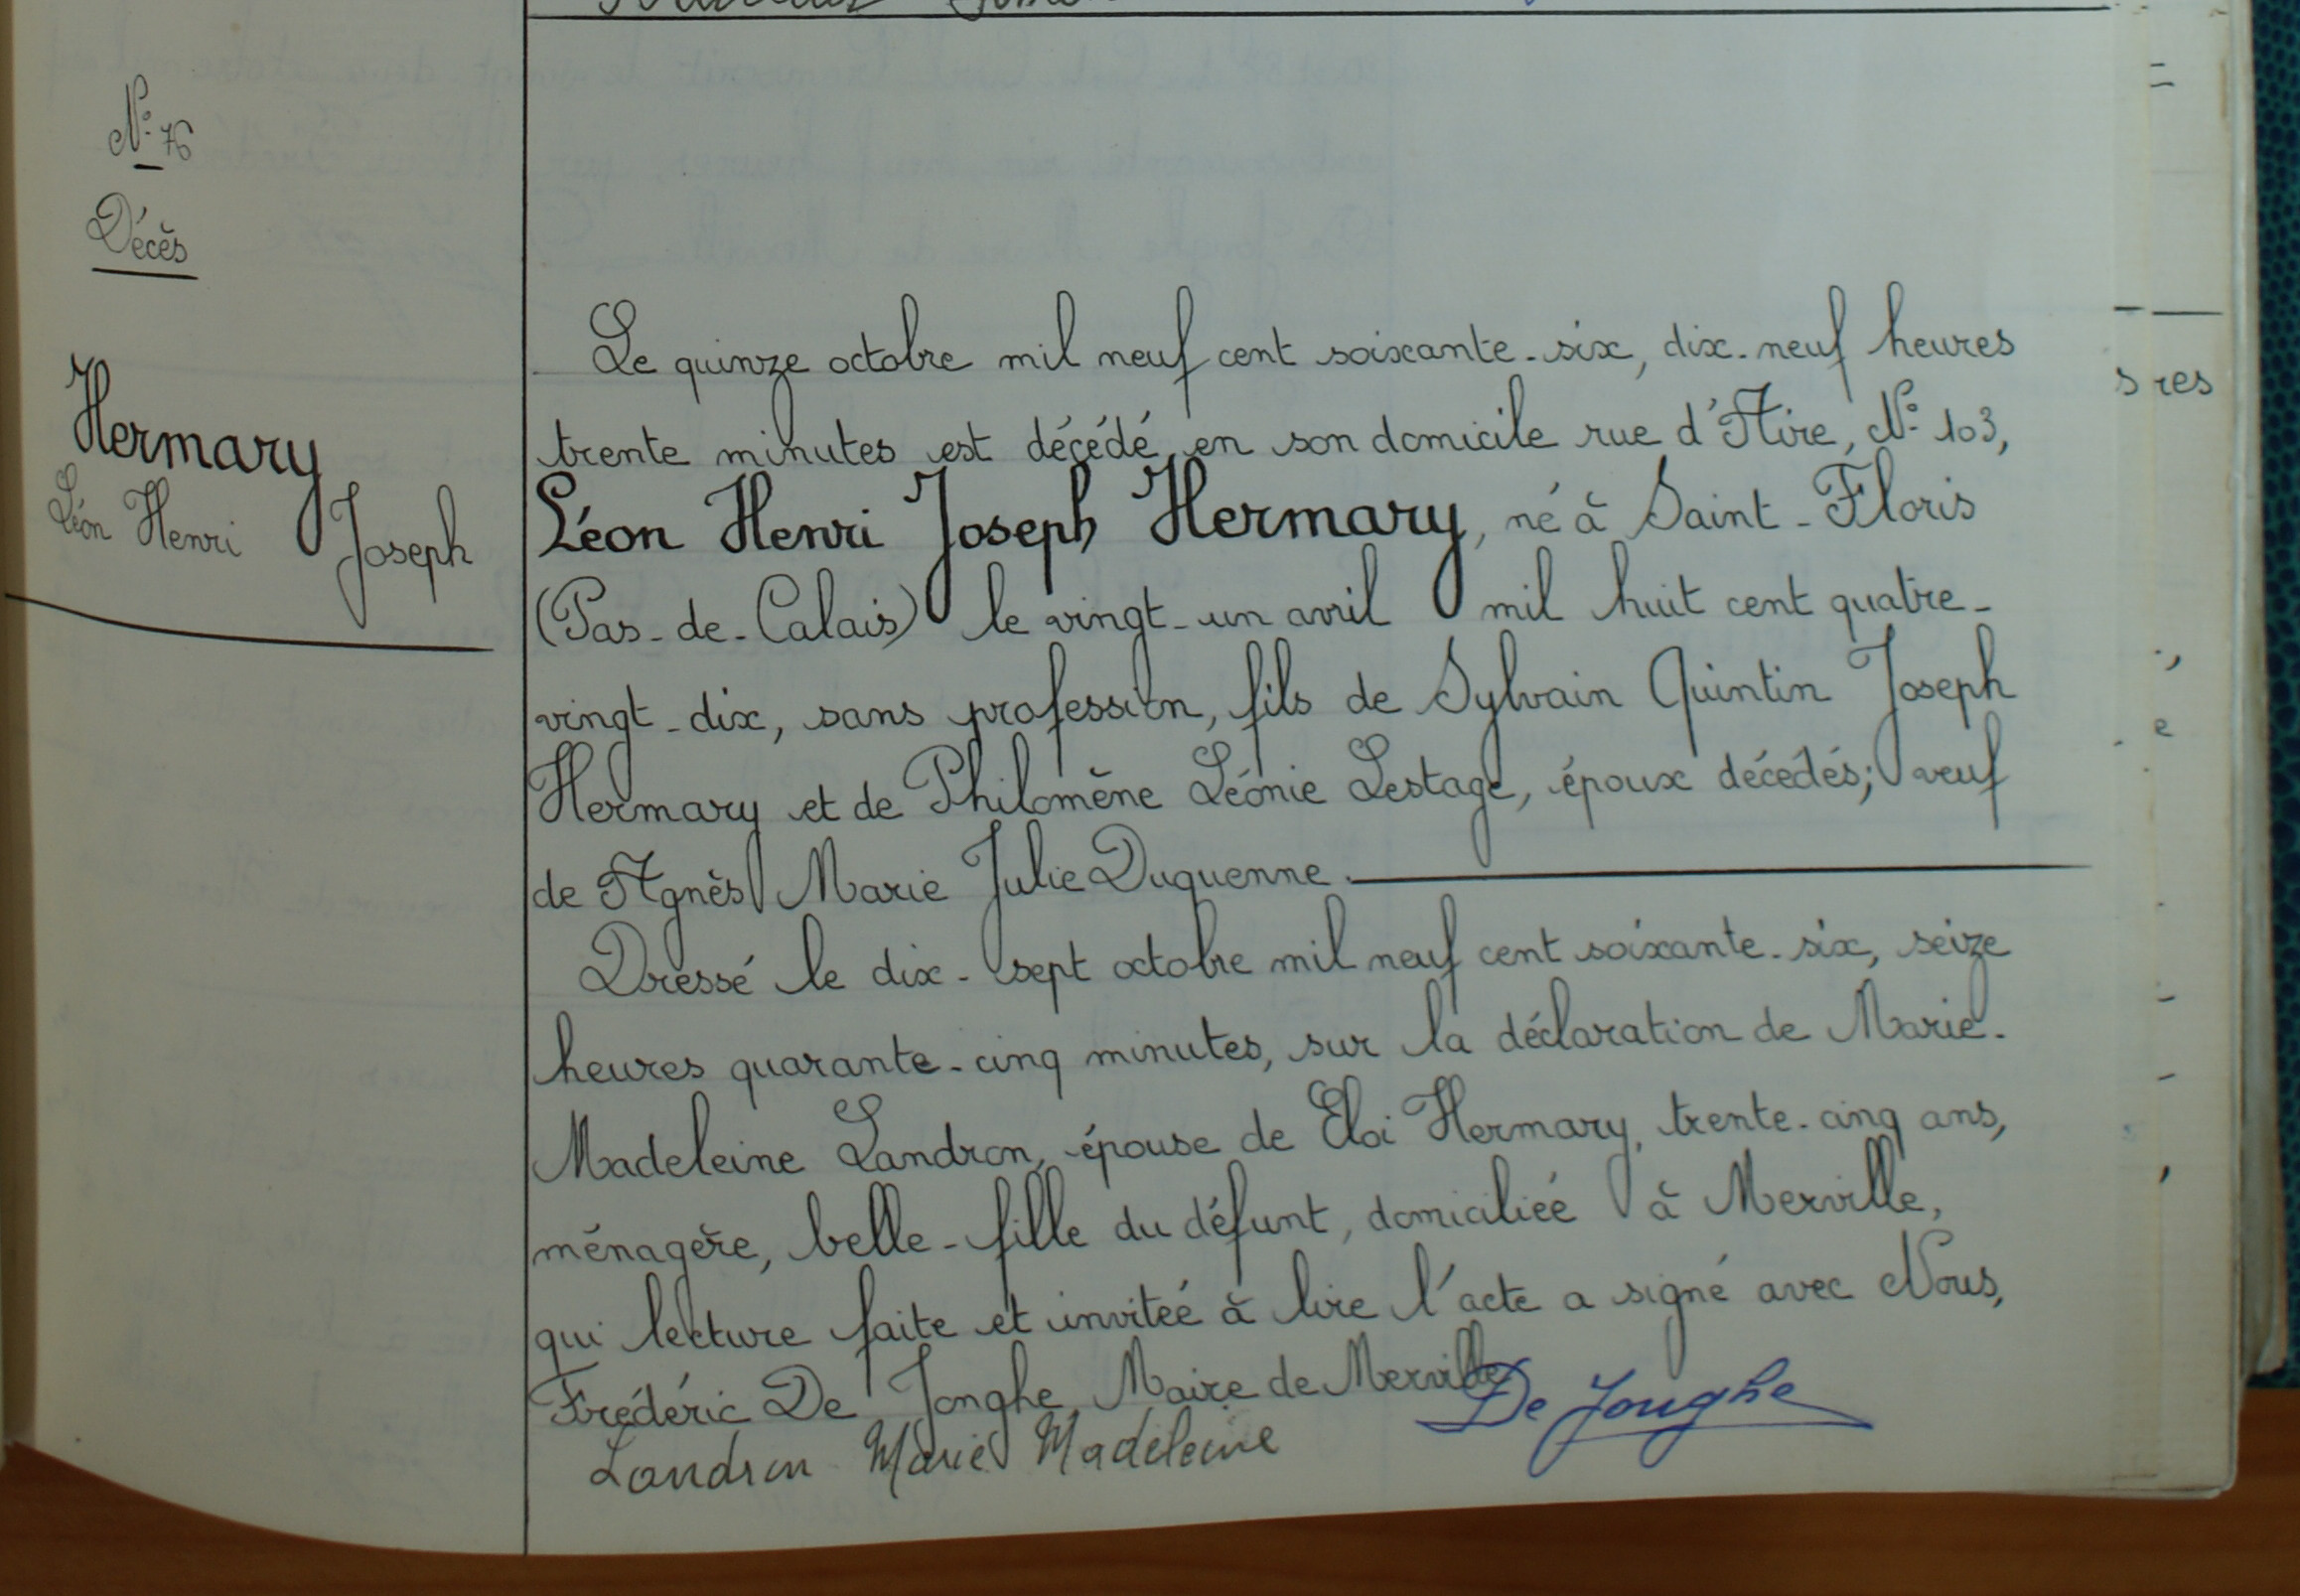 N° 76
Décès
Hermary
Léon Henri Joseph
Le quinze octobre mil neuf cent soixante-six, dix-neuf heures
trente minutes est décédé en son domicile rue d'Aire, N° 103,
Léon Henri Joseph Hermary, né à Saint-Floris
(Pas-de-Calais) le vingt-un avril mil huit cent quatre-
vingt-dix, sans profession, fils de Sylvain Quintin Joseph
Hermary et de Philomène Léonie Lestage, époux décédés; veuf
de Agnès Marie Julie Duquenne.
Dressé le dix-sept octobre mil neuf cent soixante-six, seize
heures quarante-cinq minutes, sur la déclaration de Marie-
Madeleine Landron, épouse de Eloi Hermary, trente-cinq ans,
ménagère, belle-fille du défunt, domiciliée à Merville,
qui lecture faite et invitée à lire l'acte a signé avec Nous,
Frédéric De Jonghe, Maire de Merville
De Jonghe
Landron Marie Madeleine
s res
e